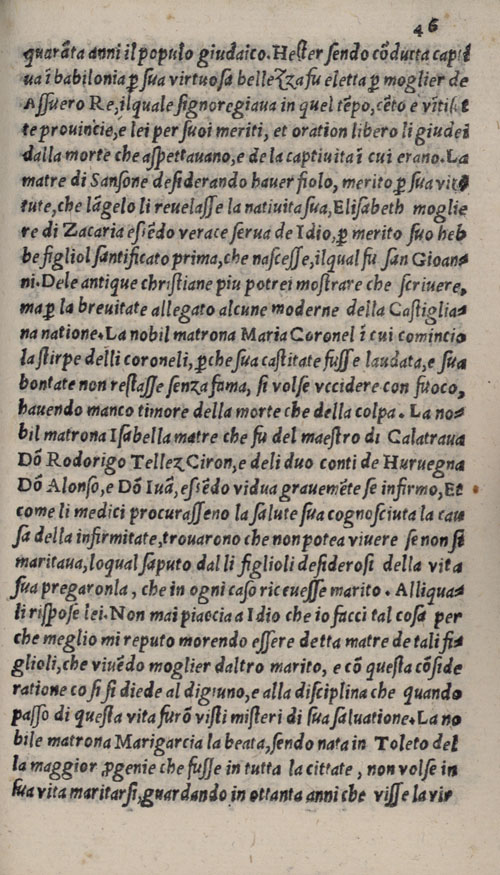 46
quarãta anni il populo giudaico. Hester sendo cõdutta capti
ua ĩ babilonia ꝑ sua virtuosa bellezza fu eletta ꝑ moglier de
Assuero Re, ilquale signoregiaua in quel tẽpo, cẽto e vĩti set
te prouincie, e lei per suoi meriti, et oration libero li giudei
dalla morte che aspettauano, e de la captiuita ĩ cui erano. La
matre di Sansone desiderando hauer fiolo, merito ꝑ sua vir
tute, che lãgelo li reuelasse la natiuita sua, Elisabeth moglie
re di Zacaria esiẽdo verace serua de Idio, ꝑ merito suo heb
be figliol santificato prima, che nascesse, ilqual fu san Gioan=
ni. Dele antique christiane piu potrei mostrare che scriuere,
ma ꝑ la breuitate allegato alcune moderne della Castiglia=
na natione. La nobil matrona Maria Coronel ĩ cui comincio
la stirpe delli coroneli, ꝑche sua castitate fusse laudata, e sua
bontate non restasse senza fama, si volse vccidere con fuoco,
hauendo manco timore della morte che della colpa. La no=
bil matrona Isabella matre che fu del maestro di Calatraua
Dõ Rodorigo Tellez Ciron, e deli duo conti de Huruegna
Dõ Alonso, e Dõ Iuã, esiẽdo vidua grauemẽte se infirmo, Et
come li medici procurasseno la salute sua cognosciuta la cau
sa della infirmitate, trouarono che non potea viuere se non si
maritaua, loqual saputo dal li figlioli desiderosi della vita
sua pregaronla, che in ogni caso riceuesse marito. Alliqua=
li rispose lei. Non mai piaccia a Idio che io facci tal cosa per
che meglio mi reputo morendo essere detta matre de tali fi=
glioli, che viuẽdo moglier daltro marito, e cõ questa cõside
ratione co si si diede al digiuno, e alla disciplina che quando
passo di questa vita furõ visti misteri di sua saluatione. La no
bile matrona Marigarcia la beata, sendo nata in Toleto del
la maggior ꝓgenie che fusse in tutta la cittate, non volse in
sua vita maritarsi, guardando in ottanta anni che visse la vir